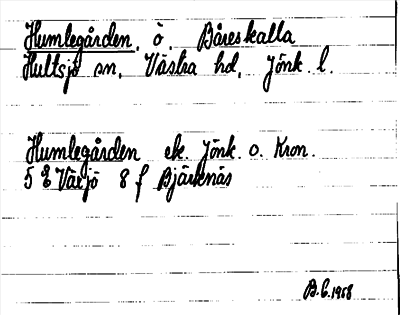 Humlegården, ö. Båreskalla
Hultsjö sn, Västra hd, Jönk. l.
Humlegården ek. Jönk. o. Kron.
5 E Växjö 8 f Bjärknäs
B.C. 1958